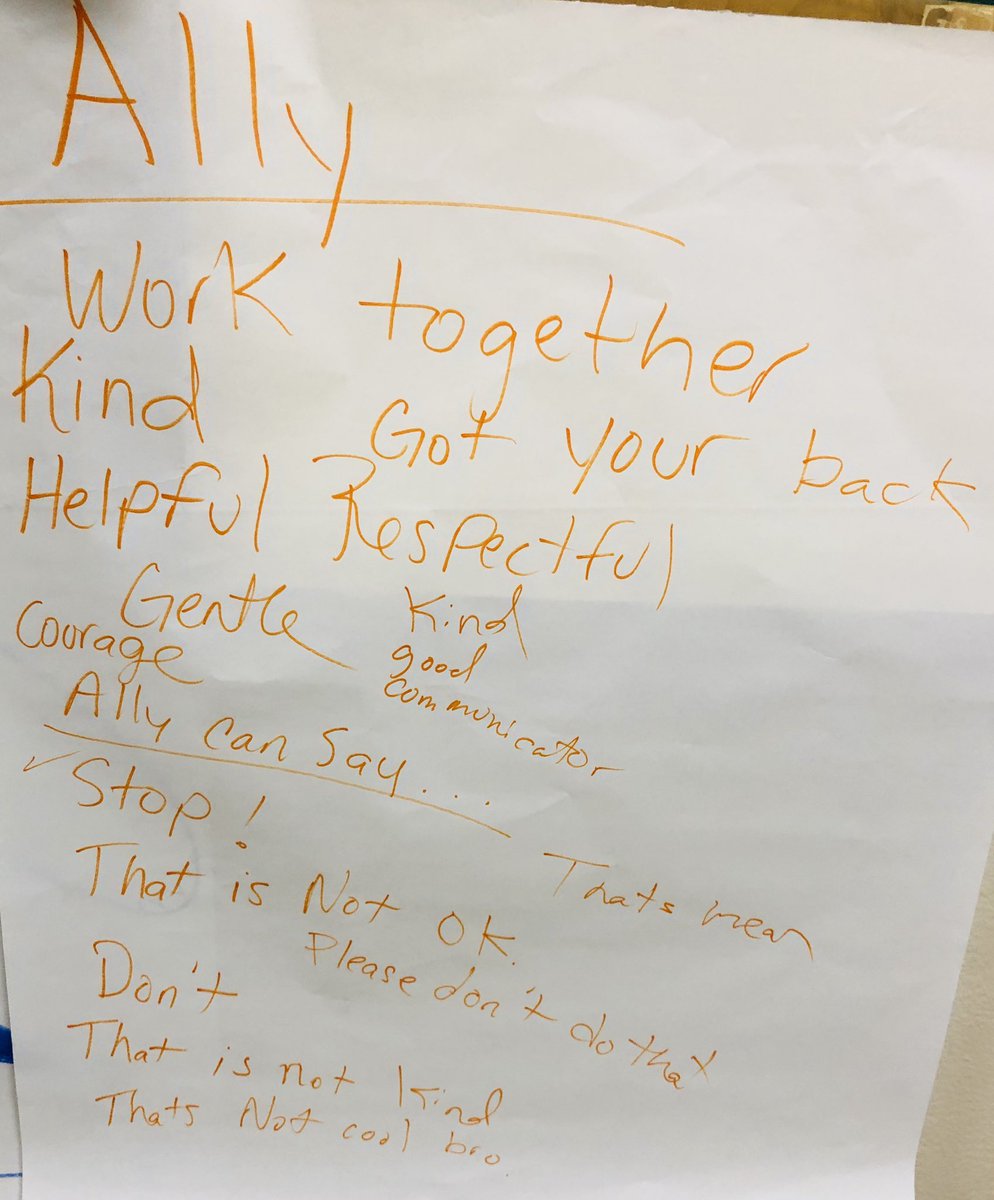 Ally
Work together
Kind
Got your back
Helpful Respectful
Gentle
Kind
Courage
good
communicator
Ally can say...
✓ Stop!
Thats mean
That is Not OK.
Please don't do that
Don't
That is not kind
Thats Not cool bro.